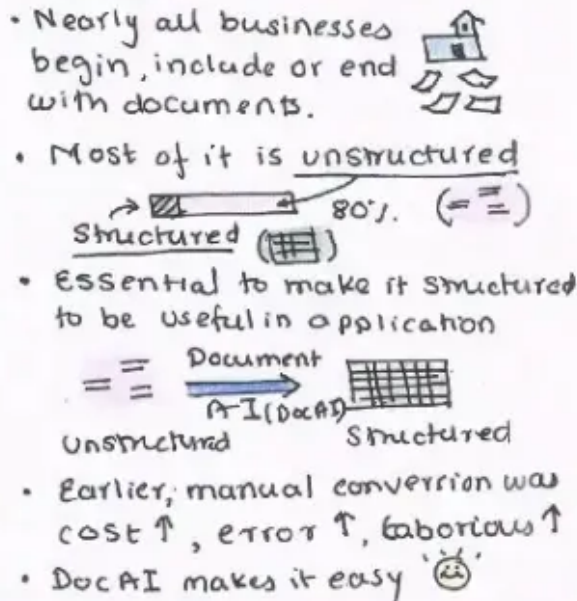 • Nearly all businesses
begin, include or end
with documents.
• Most of it is unstructured
80%.
Structured
• Essential to make it structured
to be useful in application
Document
AI (DocAI)
unstructured
Structured
• Earlier, manual conversion was
cost ↑, error ↑, laborious ↑
• DocAI makes it easy